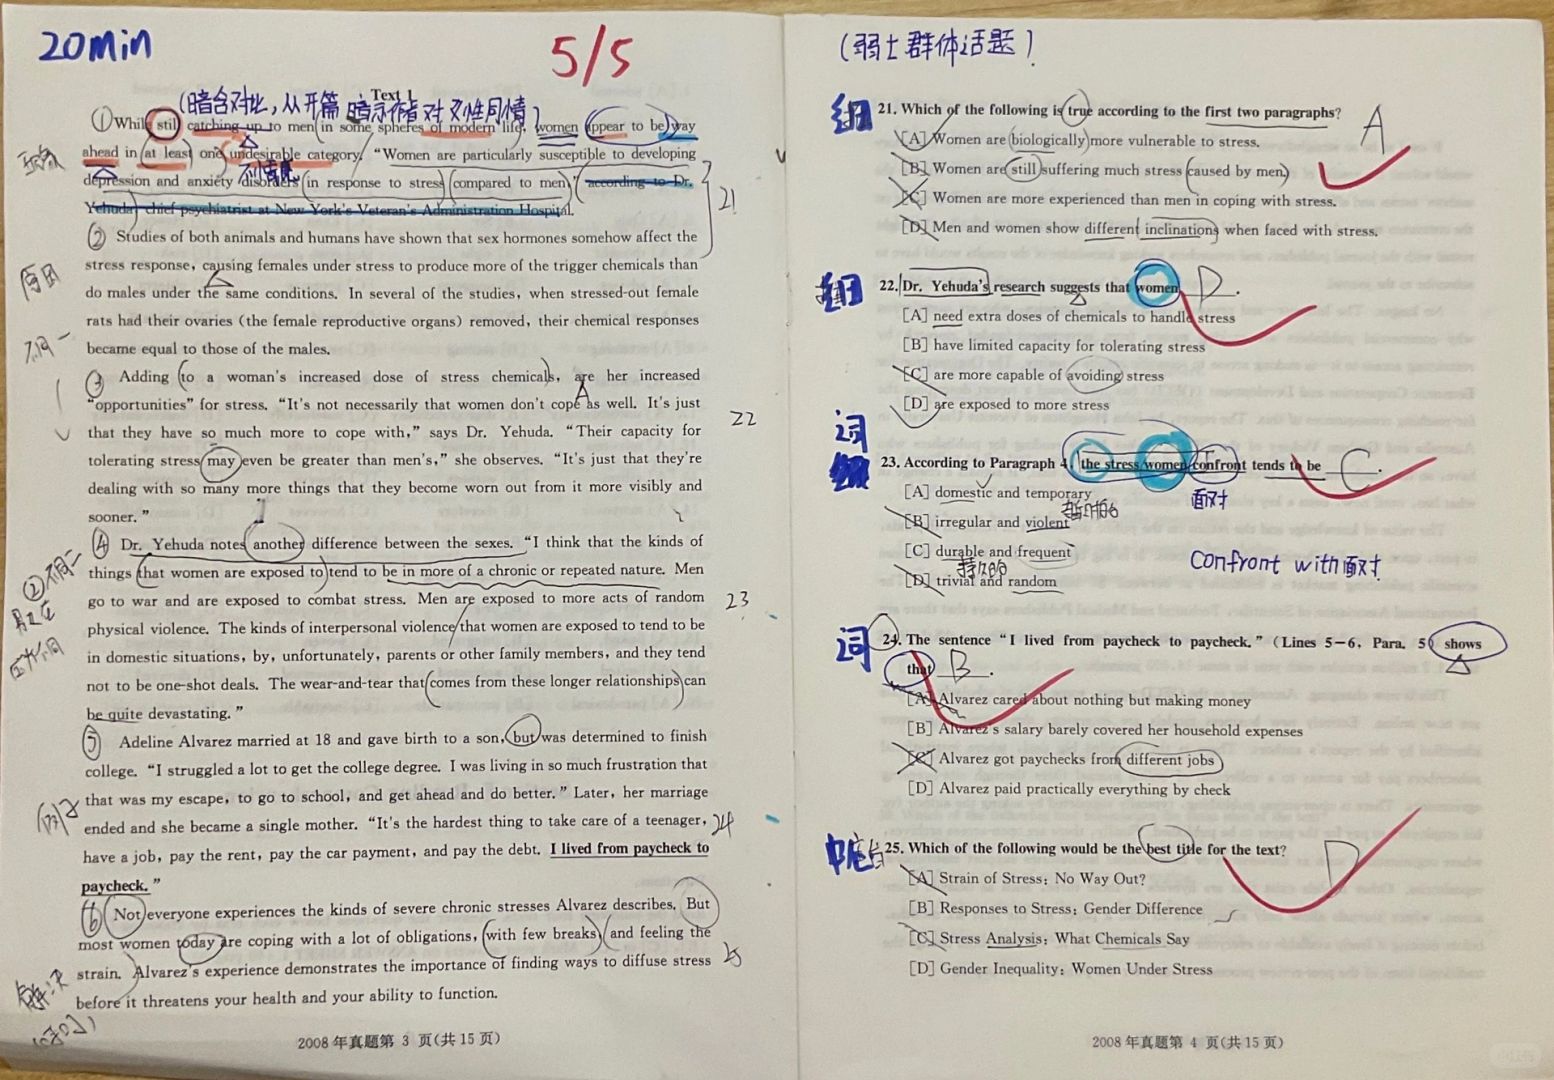 20min
5/5
Text 1
(暗含对比,从开篇 暗示作者对女性同情)
① While still catching up to men in some spheres of modern life, women appear to be way
ahead in at least one undesirable category. “Women are particularly susceptible to developing
depression and anxiety disorders in response to stress compared to men,” according to Dr.
Yehuda, chief psychiatrist at New York's Veteran's Administration Hospital.
21
② Studies of both animals and humans have shown that sex hormones somehow affect the
原因
stress response, causing females under stress to produce more of the trigger chemicals than
do males under the same conditions. In several of the studies, when stressed-out female
rats had their ovaries (the female reproductive organs) removed, their chemical responses
不同一
became equal to those of the males.
③ Adding to a woman's increased dose of stress chemicals, are her increased
“opportunities” for stress. “It's not necessarily that women don't cope as well. It's just
that they have so much more to cope with,” says Dr. Yehuda. “Their capacity for
22
tolerating stress may even be greater than men's,” she observes. “It's just that they're
dealing with so many more things that they become worn out from it more visibly and
sooner.”
④ Dr. Yehuda notes another difference between the sexes. “I think that the kinds of
②不同二
things that women are exposed to tend to be in more of a chronic or repeated nature. Men
go to war and are exposed to combat stress. Men are exposed to more acts of random
23
physical violence. The kinds of interpersonal violence that women are exposed to tend to be
in domestic situations, by, unfortunately, parents or other family members, and they tend
not to be one-shot deals. The wear-and-tear that comes from these longer relationships can
be quite devastating.”
⑤ Adeline Alvarez married at 18 and gave birth to a son, but was determined to finish
college. “I struggled a lot to get the college degree. I was living in so much frustration that
that was my escape, to go to school, and get ahead and do better.” Later, her marriage
ended and she became a single mother. “It's the hardest thing to take care of a teenager,
24
have a job, pay the rent, pay the car payment, and pay the debt. I lived from paycheck to
paycheck.”
⑥ Not everyone experiences the kinds of severe chronic stresses Alvarez describes. But
most women today are coping with a lot of obligations, with few breaks, and feeling the
25
strain. Alvarez's experience demonstrates the importance of finding ways to diffuse stress
解决
before it threatens your health and your ability to function.
2008 年真题第 3 页(共 15 页)
(弱士群体话题)
细
21. Which of the following is true according to the first two paragraphs?
A
[A] Women are biologically more vulnerable to stress.
[B] Women are still suffering much stress caused by men.
[C] Women are more experienced than men in coping with stress.
[D] Men and women show different inclinations when faced with stress.
细
22. Dr. Yehuda's research suggests that women D.
[A] need extra doses of chemicals to handle stress
[B] have limited capacity for tolerating stress
[C] are more capable of avoiding stress
[D] are exposed to more stress
词
23. According to Paragraph 4, the stress women confront tends to be C.
[A] domestic and temporary
暂时的
面对
[B] irregular and violent
[C] durable and frequent
持久的
Confront with面对
[D] trivial and random
词
24. The sentence “I lived from paycheck to paycheck.” (Lines 5-6, Para. 5) shows
that B.
[A] Alvarez cared about nothing but making money
[B] Alvarez's salary barely covered her household expenses
[C] Alvarez got paychecks from different jobs
[D] Alvarez paid practically everything by check
中心
25. Which of the following would be the best title for the text?
D
[A] Strain of Stress: No Way Out?
[B] Responses to Stress: Gender Difference
[C] Stress Analysis: What Chemicals Say
[D] Gender Inequality: Women Under Stress
2008 年真题第 4 页(共 15 页)